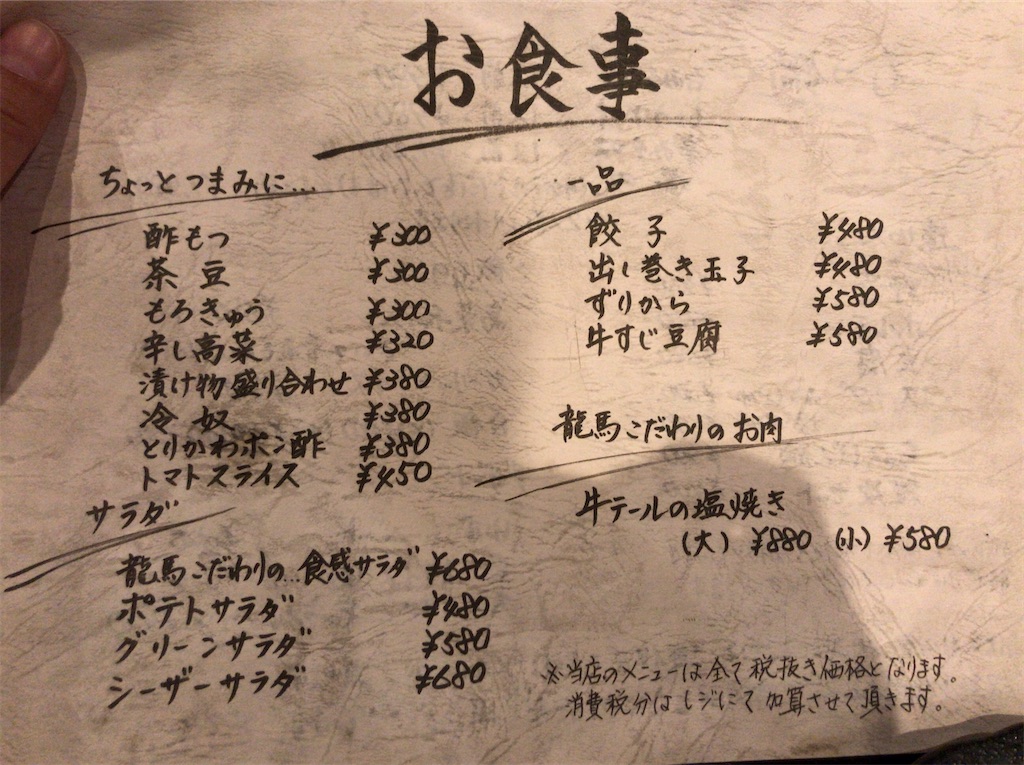 お食事
ちょっとつまみに…
酢もつ ¥300
茶豆 ¥300
もろきゅう ¥300
辛し高菜 ¥320
漬け物盛り合わせ ¥380
冷奴 ¥380
とりかわポン酢 ¥380
トマトスライス ¥450
サラダ
龍馬こだわりの…食感サラダ ¥680
ポテトサラダ ¥480
グリーンサラダ ¥580
シーザーサラダ ¥680
一品
餃子 ¥480
出し巻き玉子 ¥480
ずりから ¥580
牛すじ豆腐 ¥580
龍馬こだわりのお肉
牛テールの塩焼き
(大) ¥880 (小) ¥580
※当店のメニューは全て税抜き価格となります。
消費税分はレジにて加算させて頂きます。